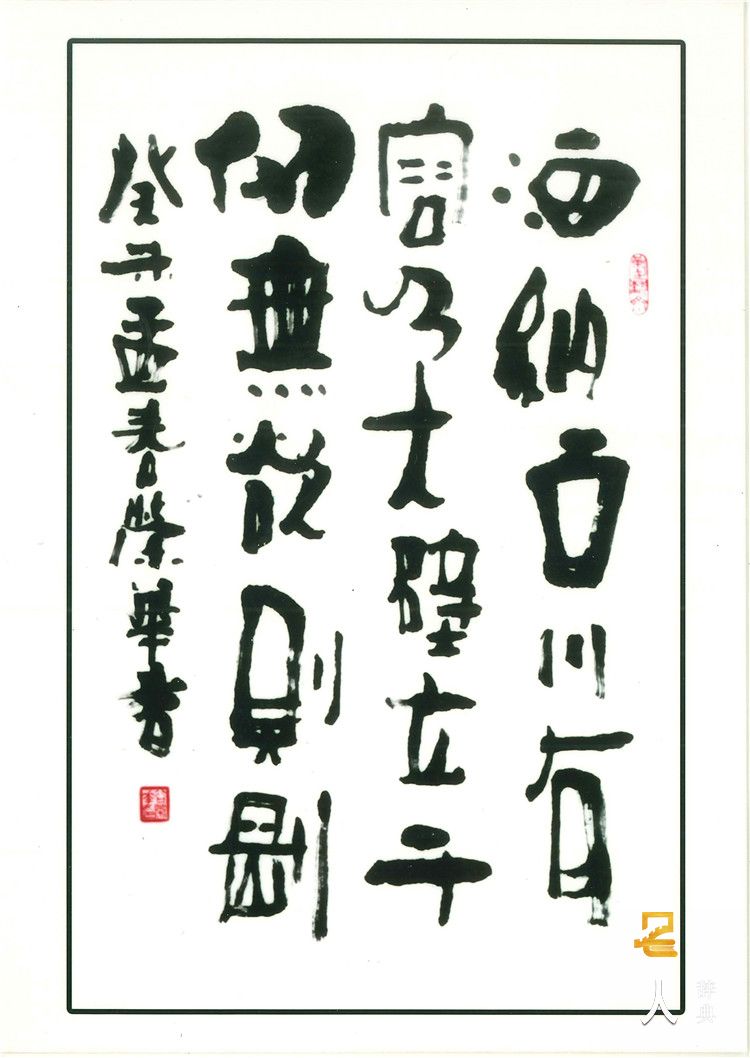 海納百川有
容乃大壁立千
仞無欲則剛
癸丑孟春榮華書
人
辞典